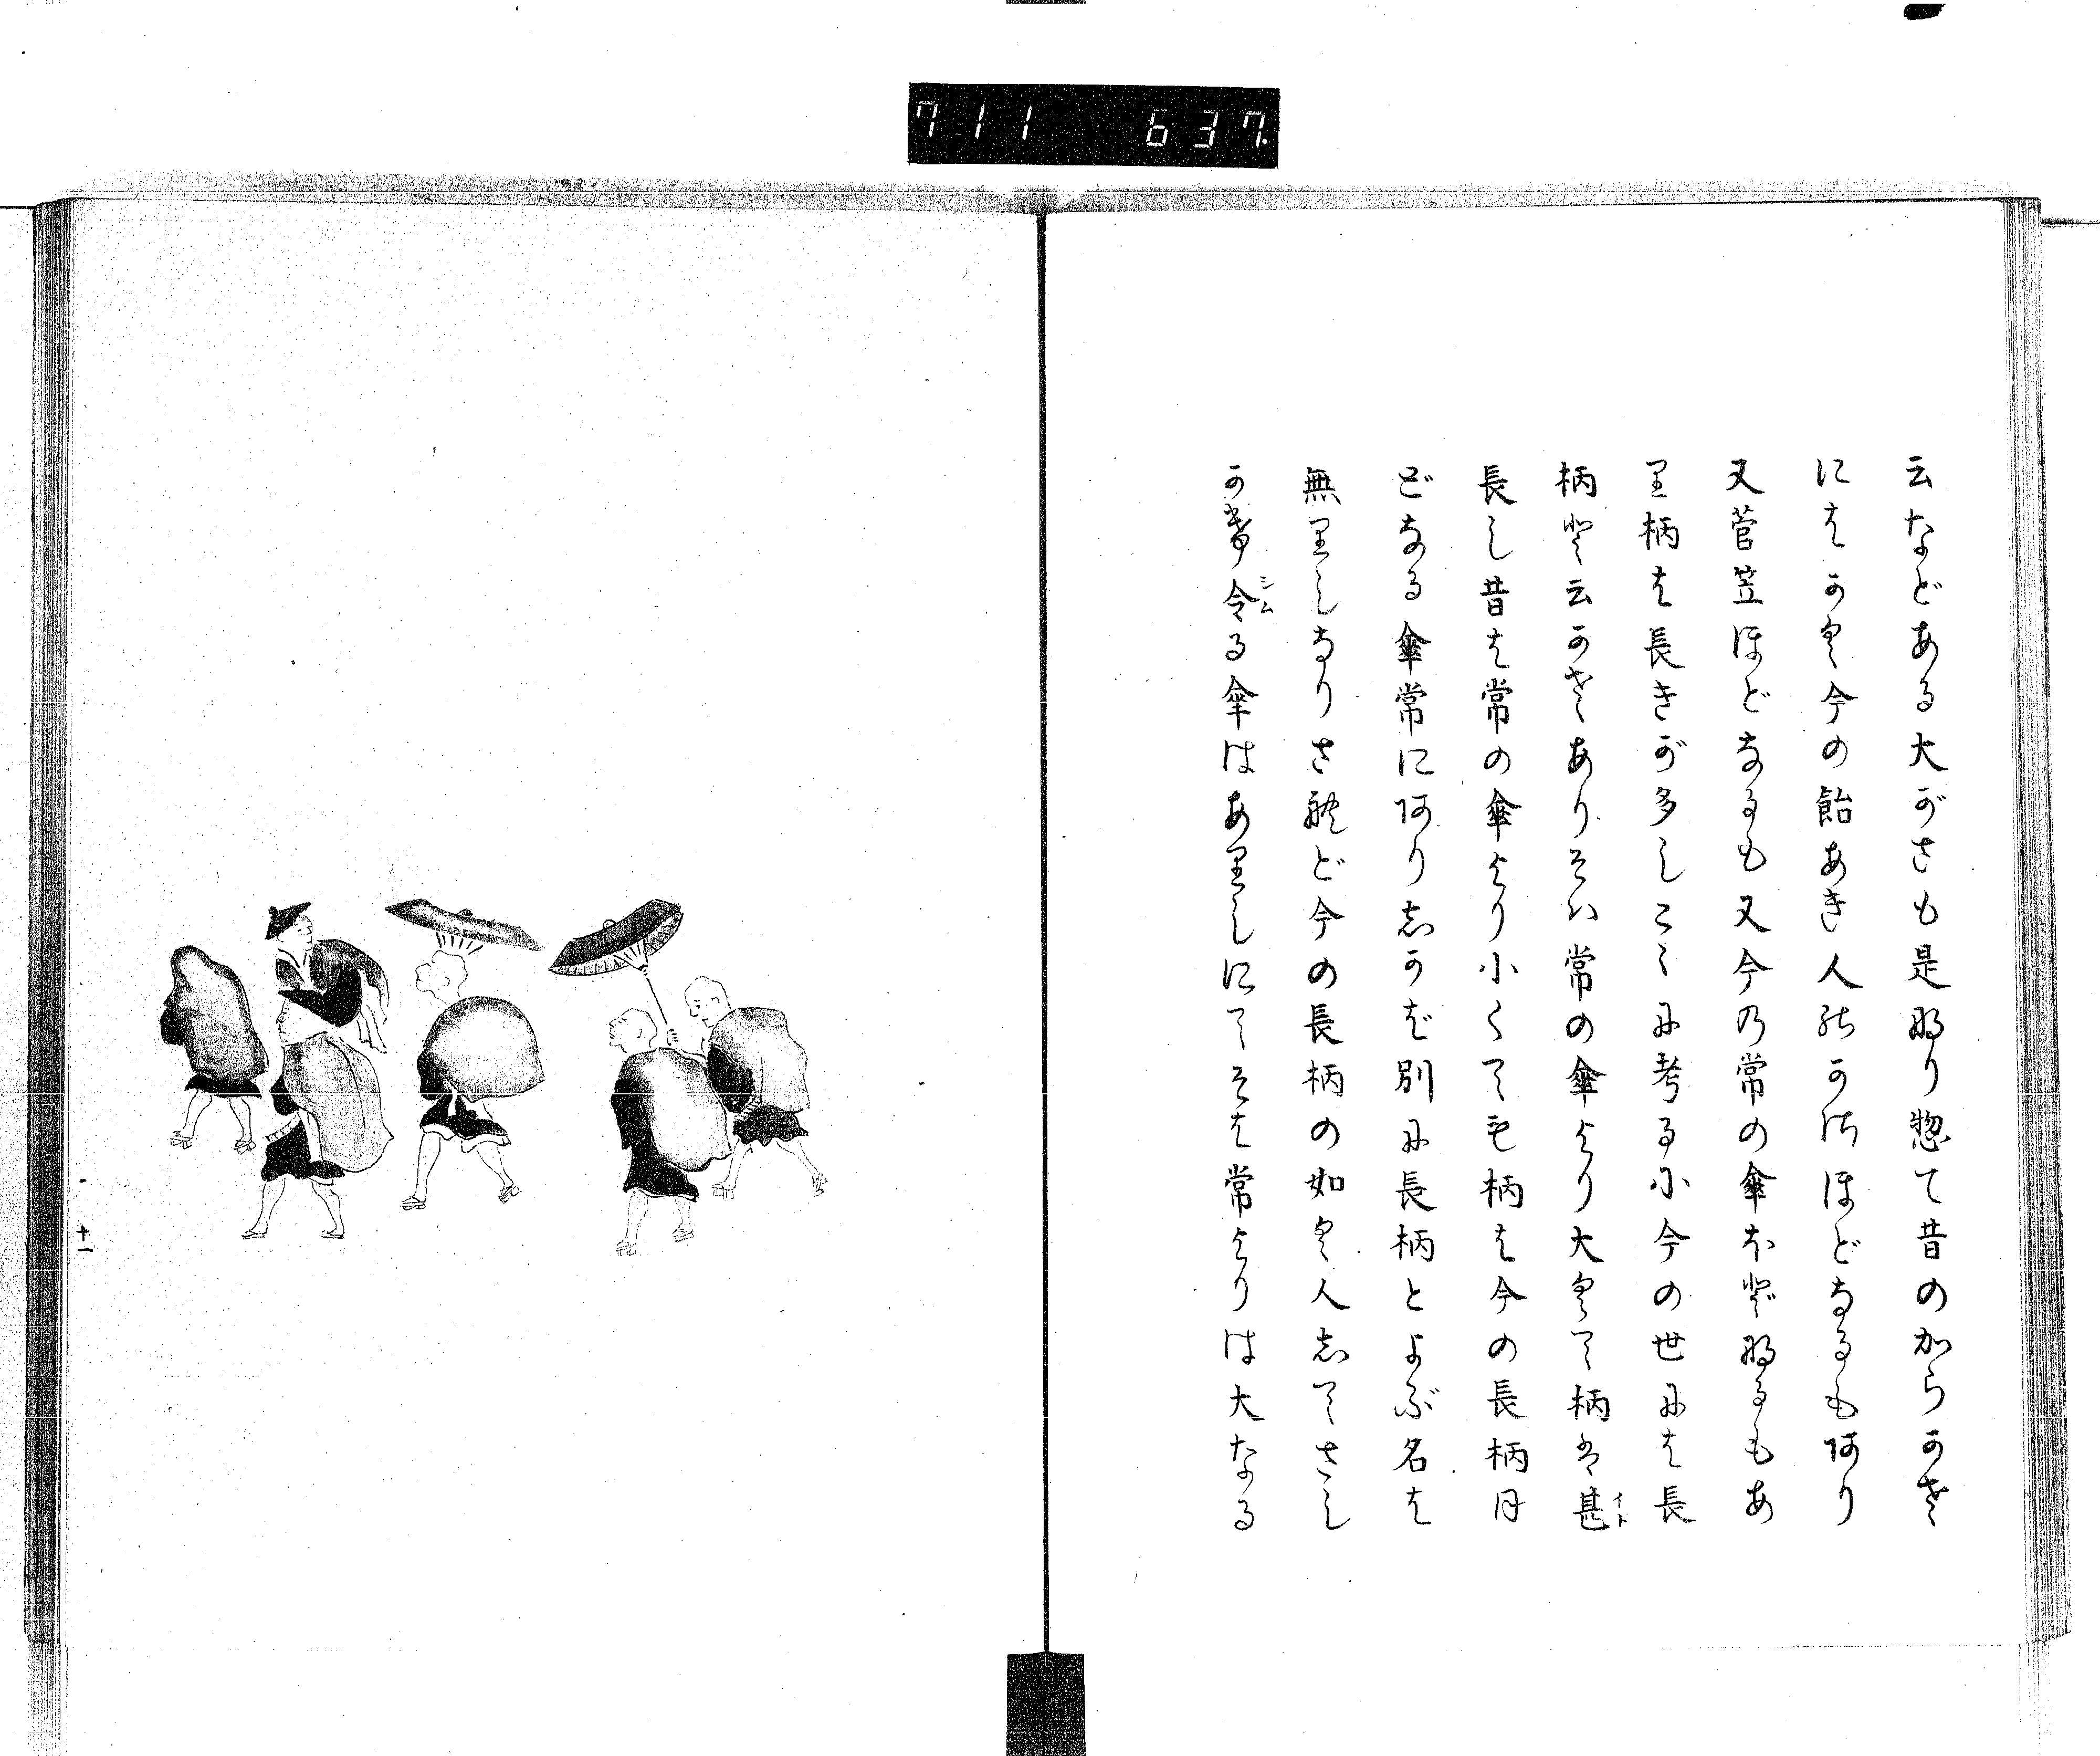 711 637
云などある大がさも是那り惣て昔のからかさ
にはかく今の飴あき人のかけほどなるも阿り
又菅笠ほどなるも又今乃常の傘ほど那るもあ
里柄は長きが多しこゝに考るに今の世には長
柄と云かさありそハ常の傘より大くて柄は甚イト
長し昔は常の傘より小くても柄は今の長柄ほ
どなる傘常に阿り志かば別に長柄とよぶ名は
無里しなりされど今の長柄の如く人志てさし
かけ令シムる傘はあ里しにてそは常よりは大なる
十一